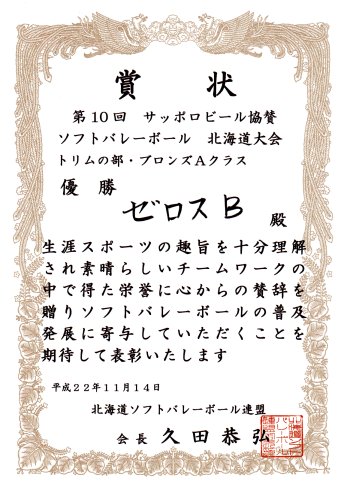 賞状
第10回 サッポロビール協賛
ソフトバレーボール 北海道大会
トリムの部・ブロンズAクラス
優勝
ゼロスB 殿
生涯スポーツの趣旨を十分理解
され素晴らしいチームワークの
中で得た栄誉に心からの賛辞を
贈りソフトバレーボールの普及
発展に寄与していただくことを
期待して表彰いたします
平成22年11月14日
北海道ソフトバレーボール連盟
会長 久田恭弘